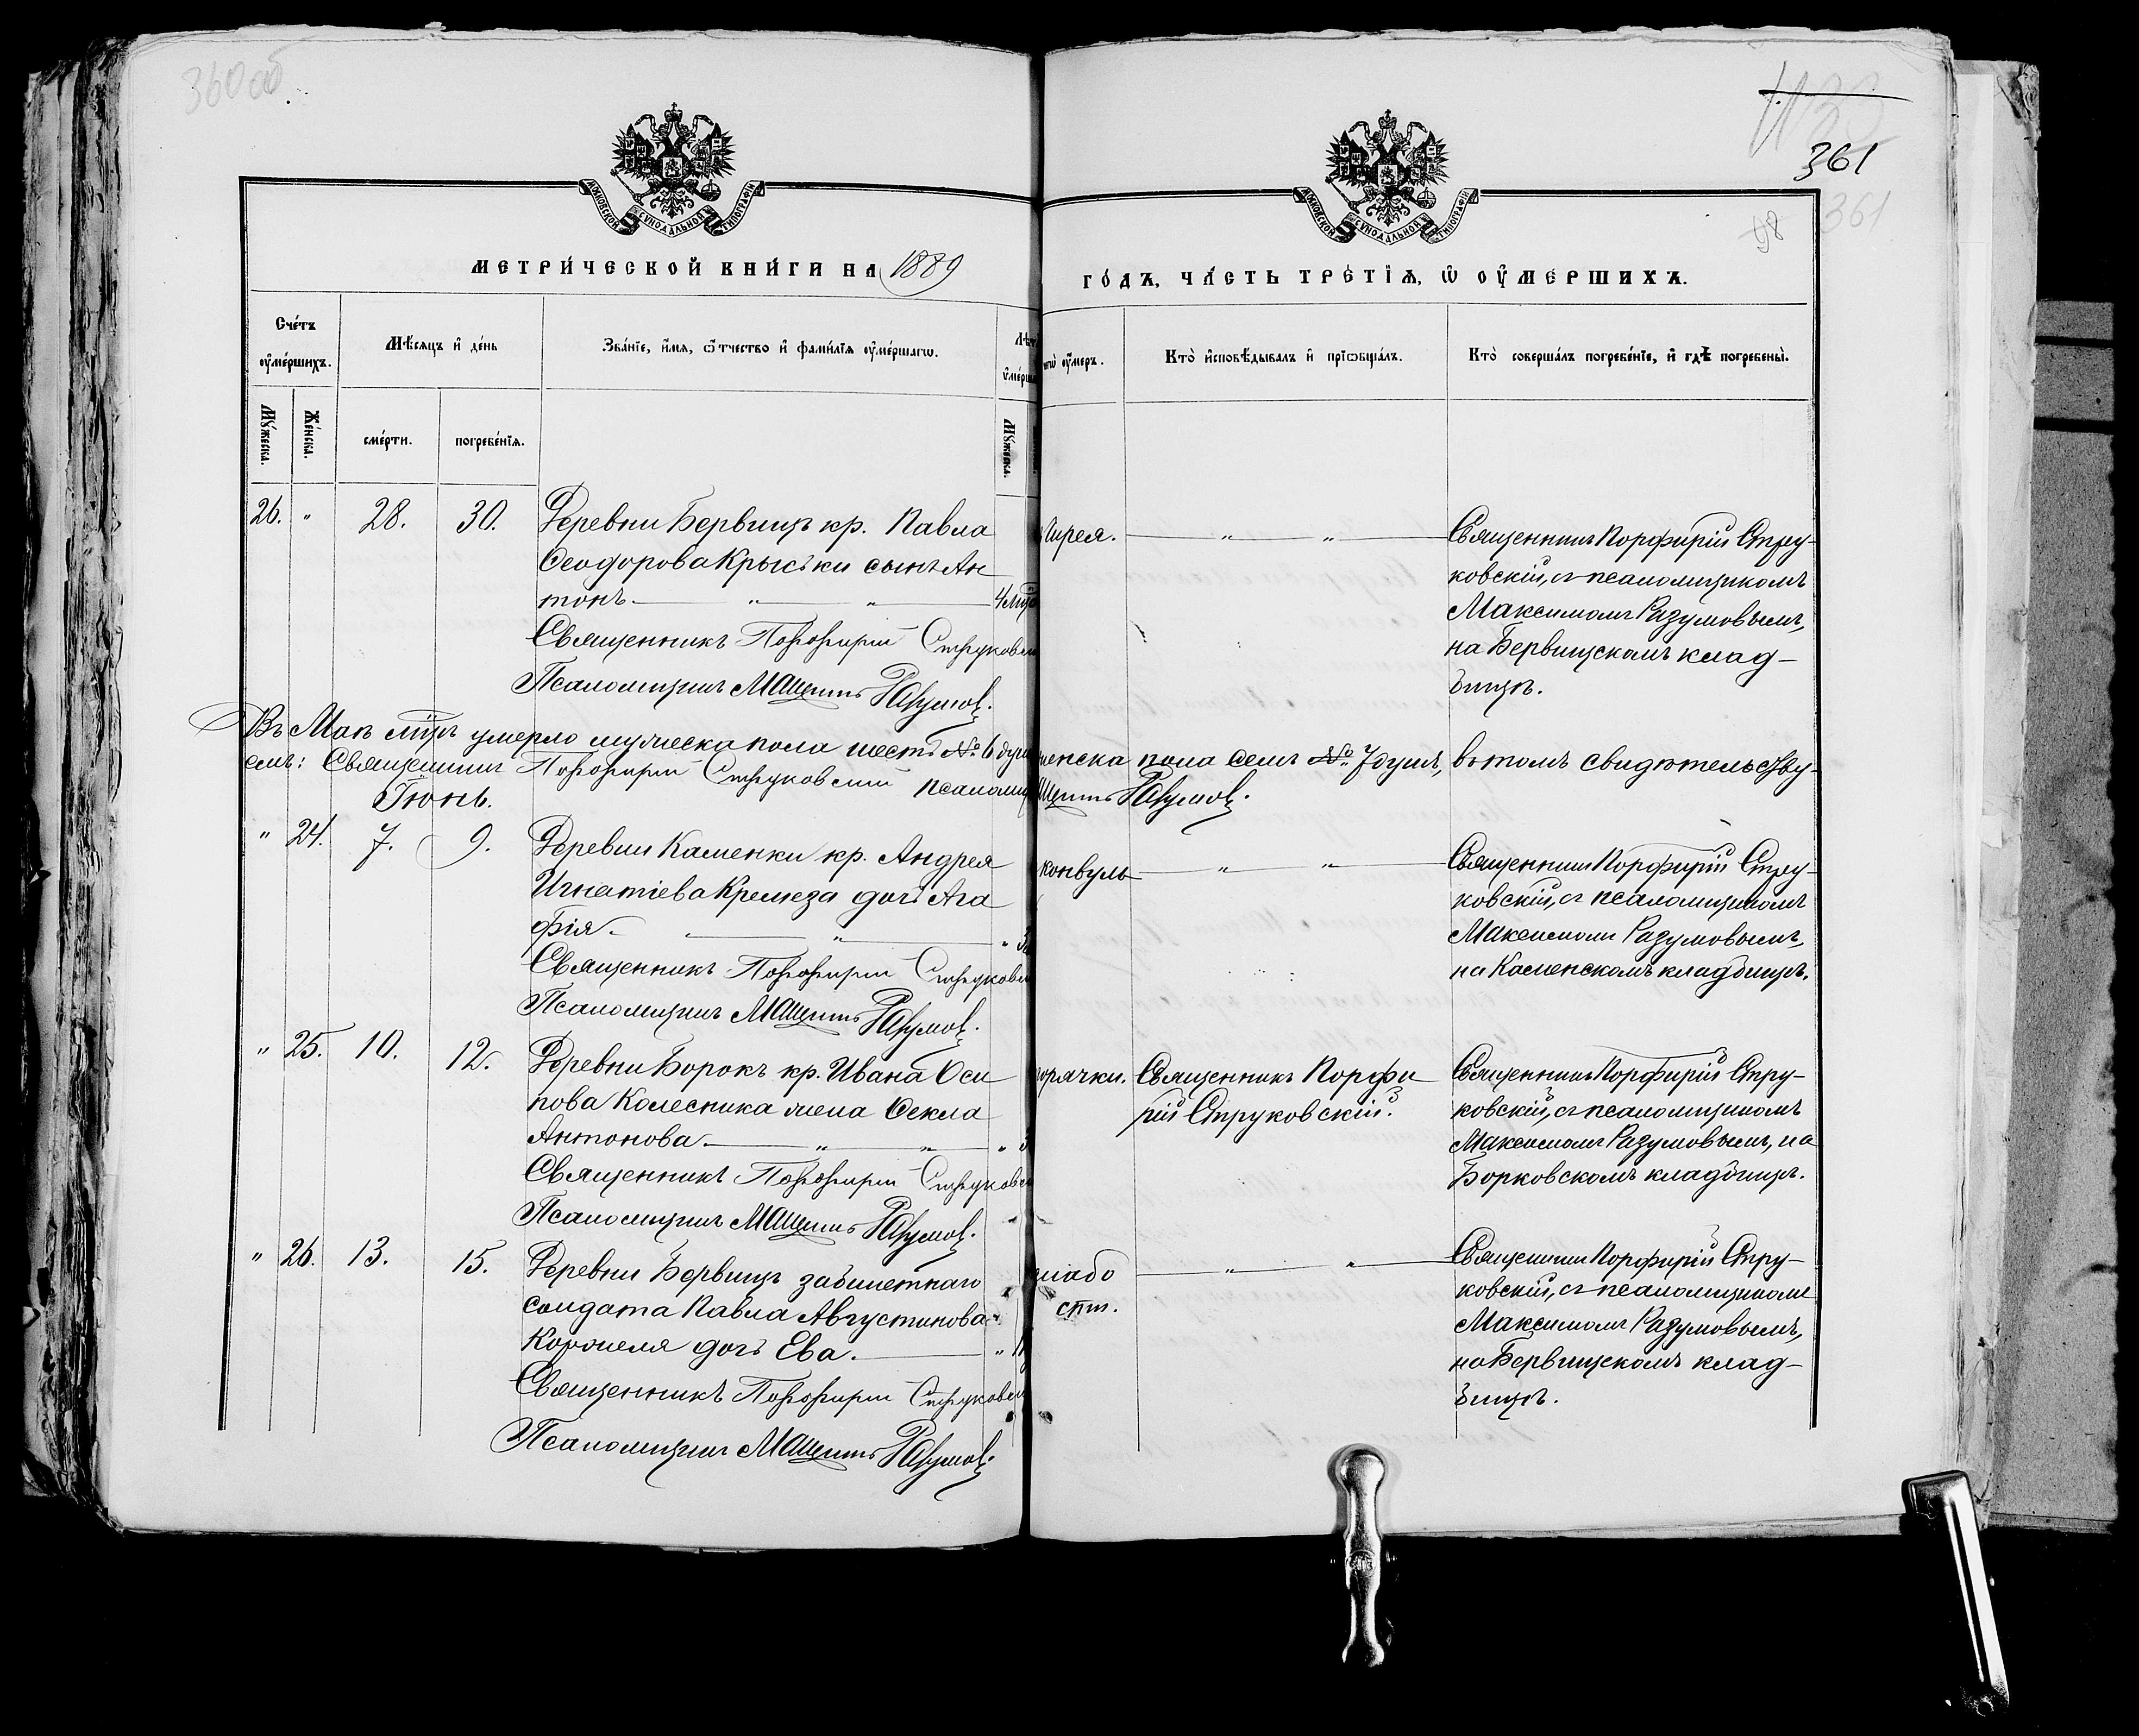 360 об
361
361
МОСКОВСКОЙ СѴНОДАЛЬНОЙ ТИПОГРАФІИ
МОСКОВСКОЙ СѴНОДАЛЬНОЙ ТИПОГРАФІИ
МЕТРИ́ЧЕСКОЙ КНИ́ГИ НА 1889
ГО́ДЪ, ЧА́СТЬ ТРЕ́ТЇѦ, Ѡ҆ ОУ҆МЕ́РШИХЪ.
Сче́тъ оу҆ме́ршихъ.
Мꙋ́жеска.
Же́нска.
Мѣ́сѧцъ и҆ де́нь
сме́рти.
погребе́нїѧ.
Зва́нїе, и҆́мѧ, ѻ҆́тчество и҆ фами́лїѧ оу҆ме́ршагѡ.
Мꙋ́жеска.
оу҆́меръ.
Кто̀ и҆сповѣ́дывалъ и҆ прїѡбща́лъ.
Кто̀ соверша́лъ погребе́нїе, и҆ гдѣ̀ погребены̀.
26. " 28. 30. Деревни Бервицъ кр. Павла
Ѳеодорова Крыськи сынъ Ан
тонъ. — " — " —
Священникъ Порфирій Струковск
Псаломщикъ Максимъ Разумов.
Священникъ Порфирій Стру-
ковскій, съ псаломщикомъ
Максимомъ Разумовымъ,
на Бервицскомъ клад-
бищѣ.
Въ Маѣ м-цѣ умерло мужеска пола шесть № 6 душ женска пола семь № 7 душъ, въ томъ свидѣтельству-
емъ: Священникъ Порфирій Струковскій Псаломщ Разумов.
Іюнь.
" 24. 7. 9. Деревни Каменки кр. Андрея
Игнатіева Кремеза дочь Ага
фія. — " —
Священникъ Порфирій Струковск
Псаломщикъ Максимъ Разумов.
конвуль — " — " —
Священникъ Порфирій Стру-
ковскій, съ псаломщикомъ
Максимомъ Разумовымъ,
на Каменскомъ кладбищѣ.
" 25. 10. 12. Деревни Борокъ кр. Ивана Оси
пова Колесника жена Ѳекла
Антонова. — " — " —
Священникъ Порфирій Струковск
Псаломщикъ Максимъ Разумов.
горячки. Священникъ Порфи
рій Струковскій.
Священникъ Порфирій Стру-
ковскій, съ псаломщикомъ
Максимомъ Разумовымъ, на
Борковскомъ кладбищѣ.
" 26. 13. 15. Деревни Бервицъ забилетнаго
солдата Павла Августинова
дочь Ева.
Священникъ Порфирій Струковск
Псаломщикъ Максимъ Разумов.
слабо
ст.
Священникъ Порфирій Стру-
ковскій, съ псаломщикомъ
Максимомъ Разумовымъ,
на Бервицскомъ клад-
бищѣ.